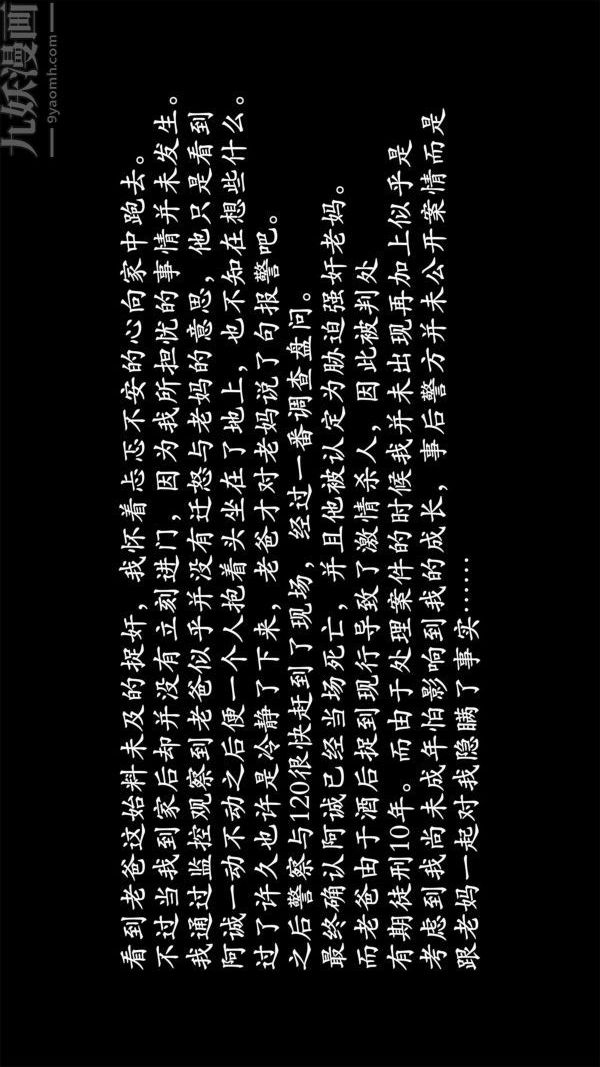 看到老爸这始料未及的捉奸，我怀着忐忑不安的心向家中跑去。
不过当我到家后却并没有立刻进门，因为我所担忧的事情并未发生。
我通过监控观察到老爸似乎并没有迁怒与老妈的意思，他只是看到
阿诚一动不动之后便一个人抱着头坐在了地上，也不知在想些什么。
过了许久也许是冷静了下来，老爸才对老妈说了句报警吧。
之后警察与120很快赶到了现场，经过一番调查盘问。
最终确认阿诚已经当场死亡，并且他被认定为胁迫强奸老妈。
而老爸由于酒后捉到现行导致了激情杀人，因此被判处
有期徒刑10年。而由于处理案件的时候我并未出现再加上似乎是
考虑到我尚未成年怕影响到我的成长，事后警方并未公开案情而是
跟老妈一起对我隐瞒了事实……
九妖漫画
9yaomh.com